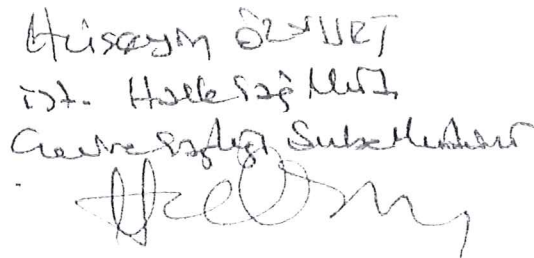 Hüseyin ÖZYURT
İst. Halk Sağ Müd.
Çevre Sağlığı Şube Müdürü